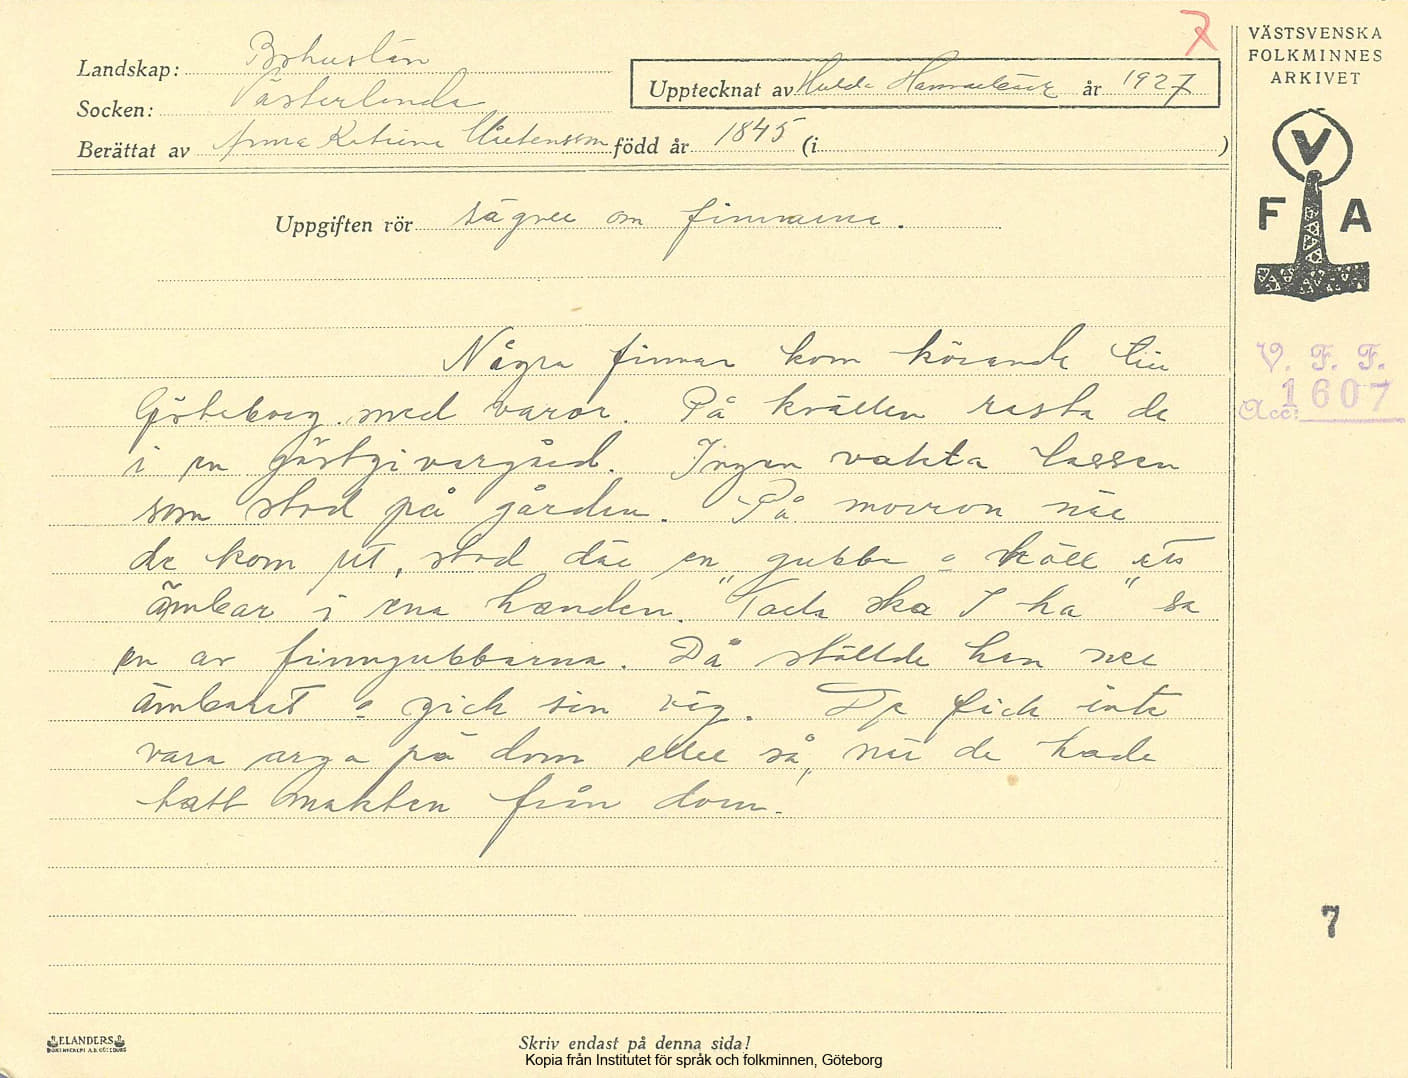 7
VÄSTSVENSKA
FOLKMINNES
ARKIVET
Landskap: Bohuslän
Socken: Västerlanda
Upptecknat av Hulda Hammarbäck år 1927
Berättat av Anna Katrina Mårtensson född år 1845 (i )
V
F A
Uppgiften rör sägner om finnarna.
V. F. F.
Acc: 1607
Några finnar kom körande till
Göteborg med varor. På kvällen rasta de
i en gästgivargård. Ingen vakta lassen
som stod på gården. På morron när
de kom ut, stod där en gubbe o höll ett
ämbar i ena handen. "Tack ska I ha" sa
en av finngubbarna. Då ställde han ner
ämbaret o gick sin väg. De fick inte
vara arga på dom eller så, när de hade
tatt makten från dom.
7
ELANDERS
BOKTRYCKERI A.B. GÖTEBORG
Skriv endast på denna sida!
Kopia från Institutet för språk och folkminnen, Göteborg